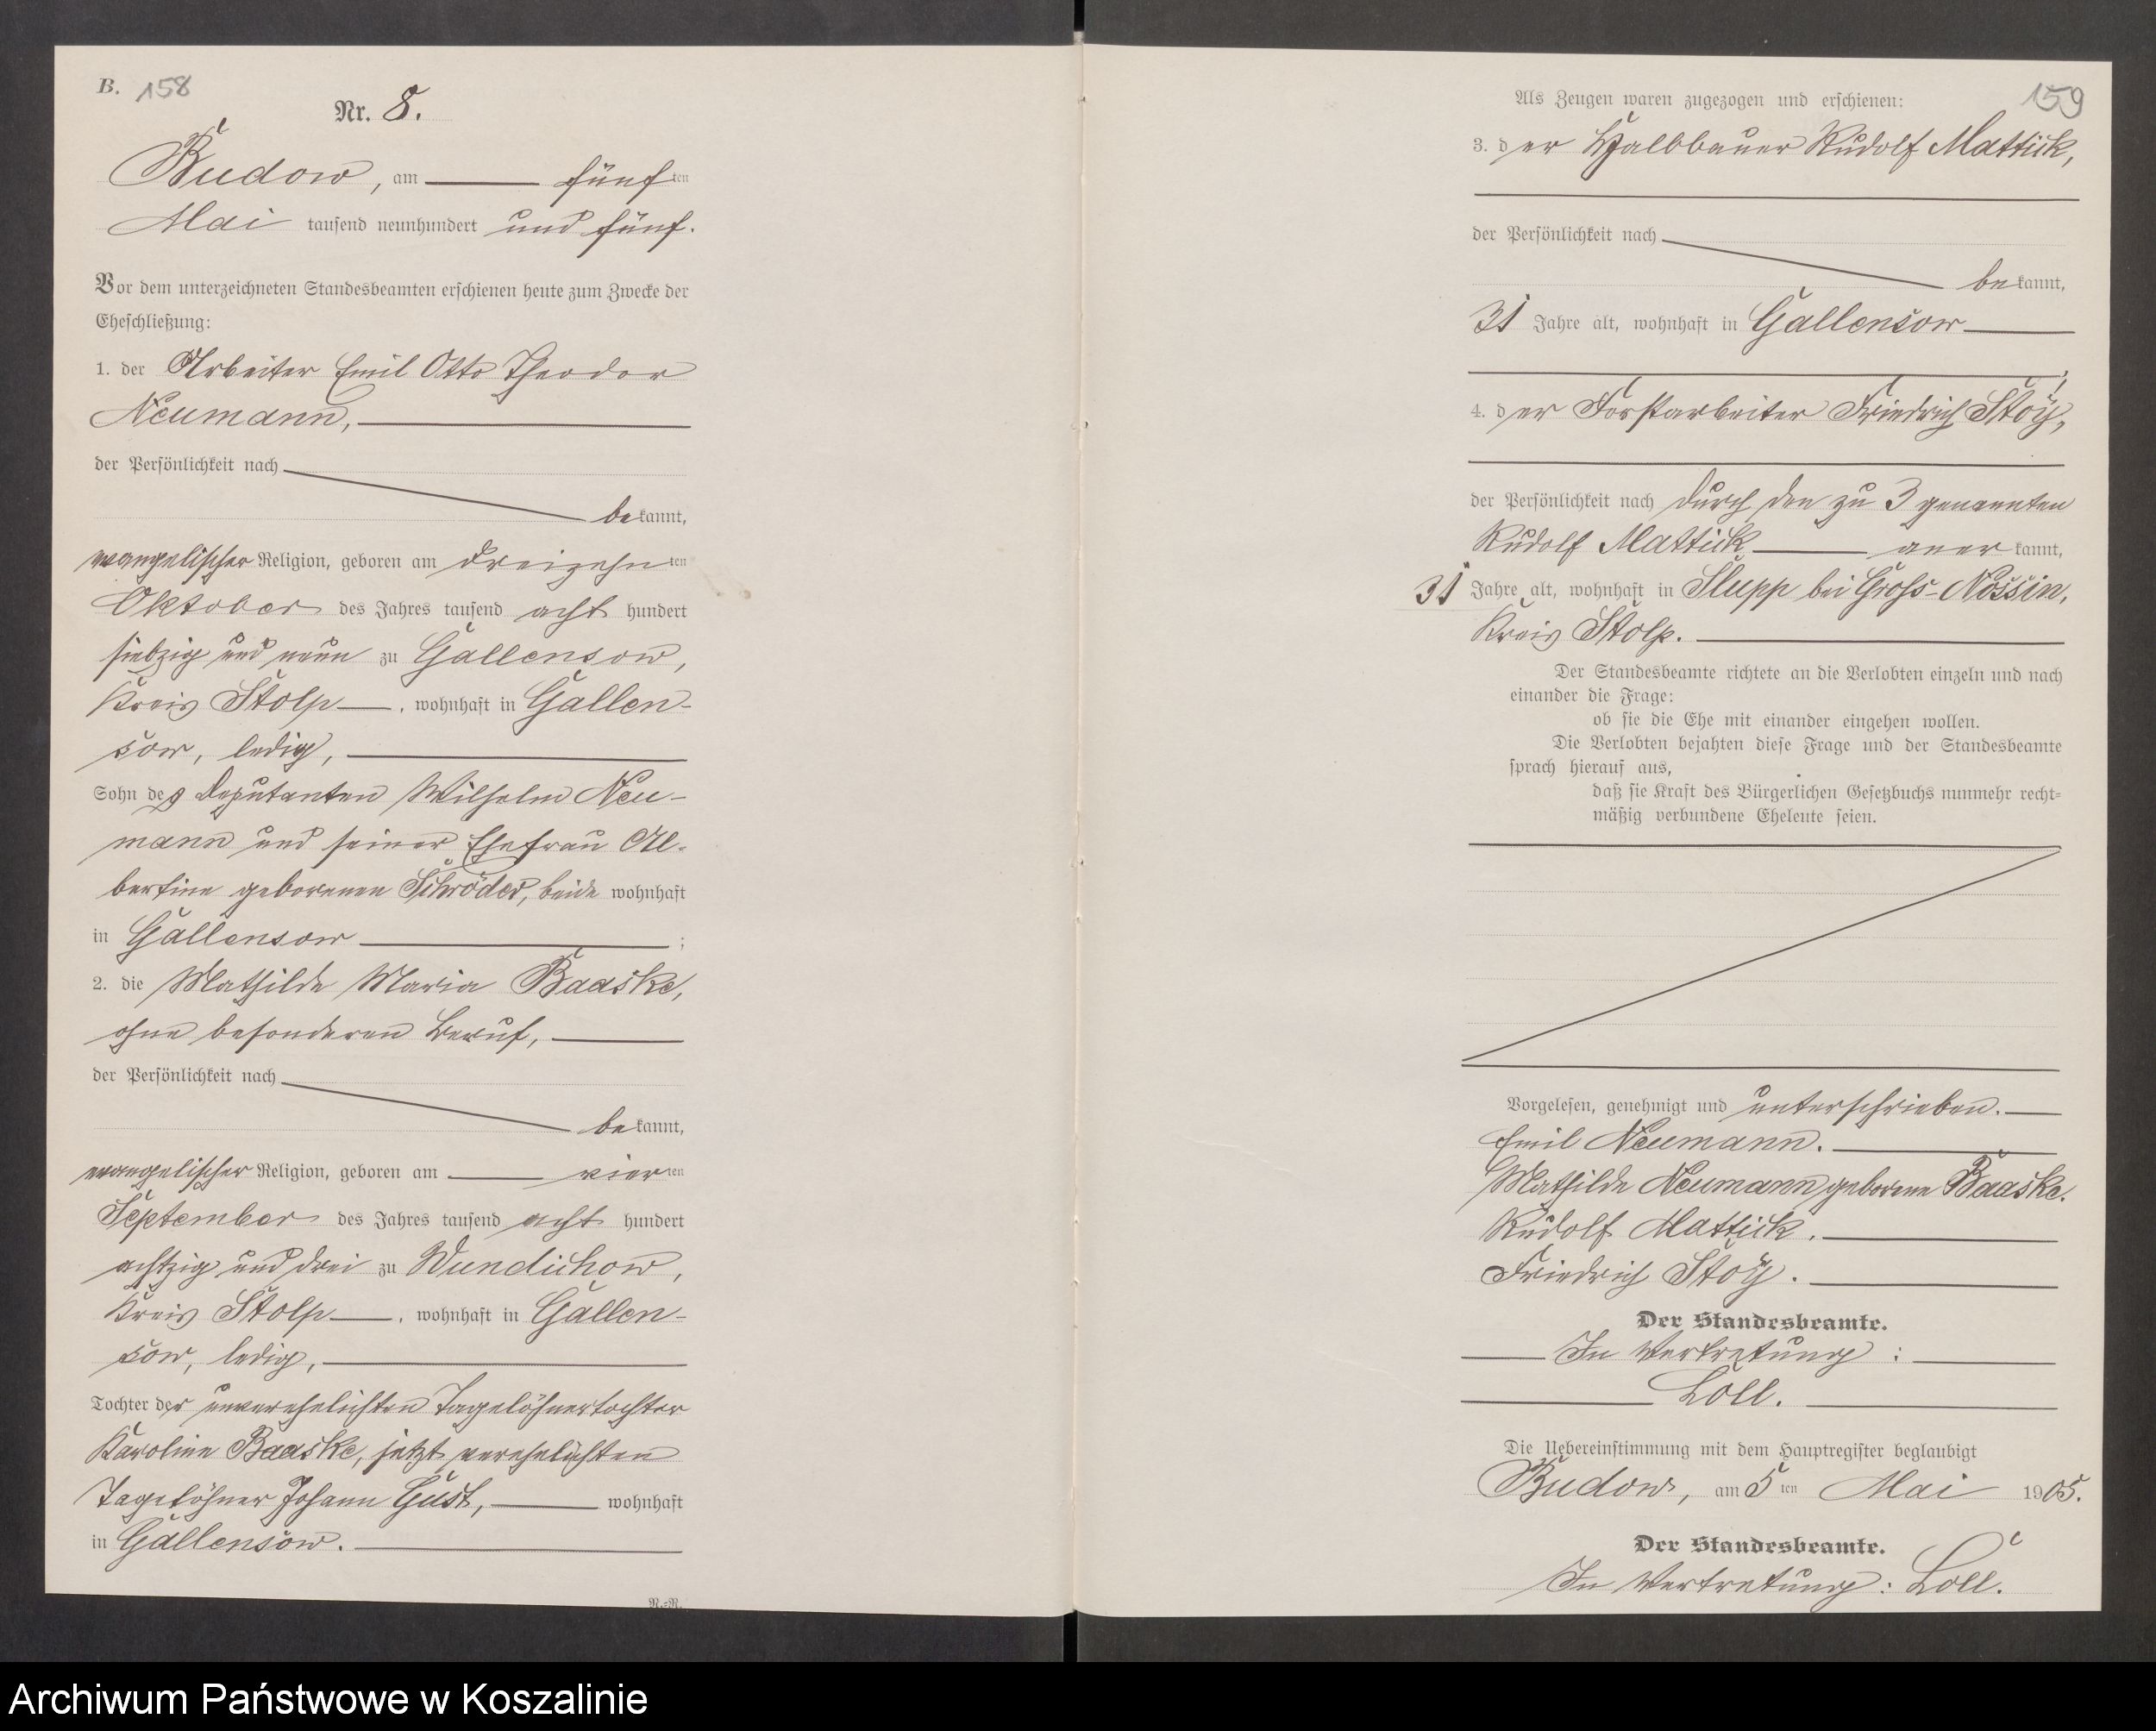 B. 158
Nr. 8.
Budow, am fünften
Mai tausend neunhundert und fünf.
Vor dem unterzeichneten Standesbeamten erschienen heute zum Zwecke der
Eheschließung:
1. der Arbeiter Emil Otto Theodor
Neumann,
der Persönlichkeit nach
bekannt,
evangelischer Religion, geboren am dreizehnten
Oktober des Jahres tausend acht hundert
siebzig und neun zu Gallensow,
Kreis Stolp, wohnhaft in Gallen-
sow, ledig,
Sohn des Deputanten Wilhelm Neu-
mann und seiner Ehefrau Al-
bertine geborenen Schröder, beide wohnhaft
in Gallensow;
2. die Mathilde Maria Baaske,
ohne besonderen Beruf,
der Persönlichkeit nach
bekannt,
evangelischer Religion, geboren am vierten
September des Jahres tausend acht hundert
achtzig und drei zu Wundichow,
Kreis Stolp, wohnhaft in Gallen-
sow, ledig,
Tochter der unverehelichten Tagelöhnertochter
Karoline Baaske, jetzt verehelichten
Tagelöhner Johann Gust, wohnhaft
in Gallensow.
N.-R.
159
Als Zeugen waren zugezogen und erschienen:
3. der Halbbauer Rudolf Mattick,
der Persönlichkeit nach
bekannt,
31 Jahre alt, wohnhaft in Gallensow
;
4. der Forstarbeiter Friedrich Stöÿ,
der Persönlichkeit nach durch den zu 3 genannten
Rudolf Mattick anerkannt,
31 Jahre alt, wohnhaft in Slupp bei Gross-Nossin,
Kreis Stolp.
Der Standesbeamte richtete an die Verlobten einzeln und nach
einander die Frage:
ob sie die Ehe mit einander eingehen wollen.
Die Verlobten bejahten diese Frage und der Standesbeamte
sprach hierauf aus,
daß sie Kraft des Bürgerlichen Gesetzbuchs nunmehr recht-
mäßig verbundene Eheleute seien.
Vorgelesen, genehmigt und unterschrieben.
Emil Neumann.
Mathilde Neumann geborene Baaske.
Rudolf Mattick.
Friedrich Stoÿ.
Der Standesbeamte.
In Vertretung:
Loll.
Die Uebereinstimmung mit dem Hauptregister beglaubigt
Budow, am 5ten Mai 1905.
Der Standesbeamte.
In Vertretung: Loll.
Archiwum Państwowe w Koszalinie